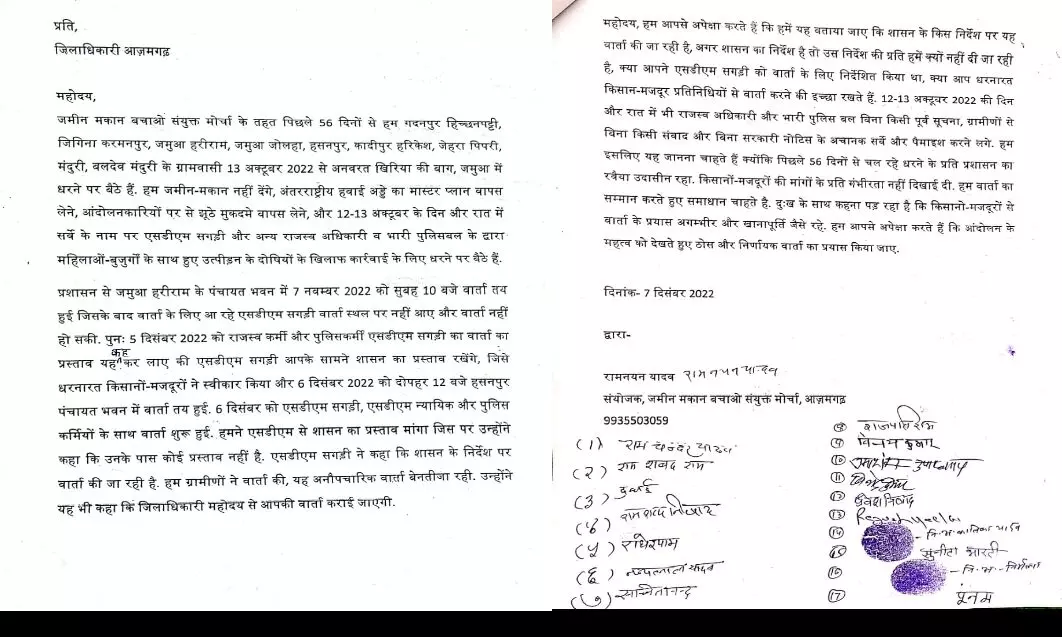 प्रति,
जिलाधिकारी आज़मगढ़
महोदय,
जमीन मकान बचाओ संयुक्त मोर्चा के तहत पिछले 56 दिनों से हम गदनपुर हिच्छनपट्टी,
जिगिना करमनपुर, जमुआ हरीराम, जमुआ जोलहा, हसनपुर, कादीपुर हरिकेश, जेहरा पिपरी,
मंदुरी, बलदेव मंदुरी के ग्रामवासी 13 अक्टूबर 2022 से अनवरत खिरिया की बाग, जमुआ में
धरने पर बैठे हैं. हम जमीन-मकान नहीं देंगे, अंतरराष्ट्रीय हवाई अड्डे का मास्टर प्लान वापस
लेने, आंदोलनकारियों पर से झूठे मुकदमे वापस लेने, और 12-13 अक्टूबर के दिन और रात में
सर्वे के नाम पर एसडीएम सगड़ी और अन्य राजस्व अधिकारी व भारी पुलिसबल के द्वारा
महिलाओं-बुजुर्गों के साथ हुए उत्पीड़न के दोषियों के खिलाफ कार्रवाई के लिए धरने पर बैठे हैं.
प्रशासन से जमुआ हरीराम के पंचायत भवन में 7 नवम्बर 2022 को सुबह 10 बजे वार्ता तय
हुई जिसके बाद वार्ता के लिए आ रहे एसडीएम सगड़ी वार्ता स्थल पर नहीं आए और वार्ता नहीं
हो सकी. पुनः 5 दिसंबर 2022 को राजस्व कर्मी और पुलिसकर्मी एसडीएम सगड़ी का वार्ता का
प्रस्ताव यह कह कर लाए की एसडीएम सगड़ी आपके सामने शासन का प्रस्ताव रखेंगे, जिसे
धरनारत किसानों-मजदूरों ने स्वीकार किया और 6 दिसंबर 2022 को दोपहर 12 बजे हसनपुर
पंचायत भवन में वार्ता तय हुई. 6 दिसंबर को एसडीएम सगड़ी, एसडीएम न्यायिक और पुलिस
कर्मियों के साथ वार्ता शुरू हुई. हमने एसडीएम से शासन का प्रस्ताव मांगा जिस पर उन्होंने
कहा कि उनके पास कोई प्रस्ताव नहीं है. एसडीएम सगड़ी ने कहा कि शासन के निर्देश पर
वार्ता की जा रही है. हम ग्रामीणों ने वार्ता की, यह अनौपचारिक वार्ता बेनतीजा रही. उन्होंने
यह भी कहा कि जिलाधिकारी महोदय से आपकी वार्ता कराई जाएगी.
महोदय, हम आपसे अपेक्षा करते हैं कि हमें यह बताया जाए कि शासन के किस निर्देश पर यह
वार्ता की जा रही है, अगर शासन का निर्देश है तो उस निर्देश की प्रति हमें क्यों नहीं दी जा रही
है, क्या आपने एसडीएम सगड़ी को वार्ता के लिए निर्देशित किया था, क्या आप धरनारत
किसान-मजदूर प्रतिनिधियों से वार्ता करने की इच्छा रखते हैं. 12-13 अक्टूबर 2022 की दिन
और रात में भी राजस्व अधिकारी और भारी पुलिस बल बिना किसी पूर्व सूचना, ग्रामीणों से
बिना किसी संवाद और बिना सरकारी नोटिस के अचानक सर्वे और पैमाइश करने लगे. हम
इसलिए यह जानना चाहते हैं क्योंकि पिछले 56 दिनों से चल रहे धरने के प्रति प्रशासन का
रवैया उदासीन रहा. किसानों-मजदूरों की मांगों के प्रति गंभीरता नहीं दिखाई दी. हम वार्ता का
सम्मान करते हुए समाधान चाहते है. दुःख के साथ कहना पड़ रहा है कि किसानो-मजदूरों से
वार्ता के प्रयास अगम्भीर और खानापूर्ति जैसे रहे. हम आपसे अपेक्षा करते हैं कि आंदोलन के
महत्व को देखते हुए ठोस और निर्णायक वार्ता का प्रयास किया जाए.
दिनांक- 7 दिसंबर 2022
द्वारा-
रामनयन यादव रामनयन यादव
संयोजक, जमीन मकान बचाओ संयुक्त मोर्चा, आज़मगढ़
9935503059
(1) राम चन्दर यादव
(२) राम शबद राम
(3) दुखई
(४) रामशब्द निषाद
(५) राधेश्याम
(६) यादव
(७)
८ राजपति राम
९ विनय कुमार
10 उपाध्याय
11
12 निषाद
13
14 नि.अ. कालिका यादव
15 सुनीता भारती
16 नि.अ. - निर्मला
17 पूनम